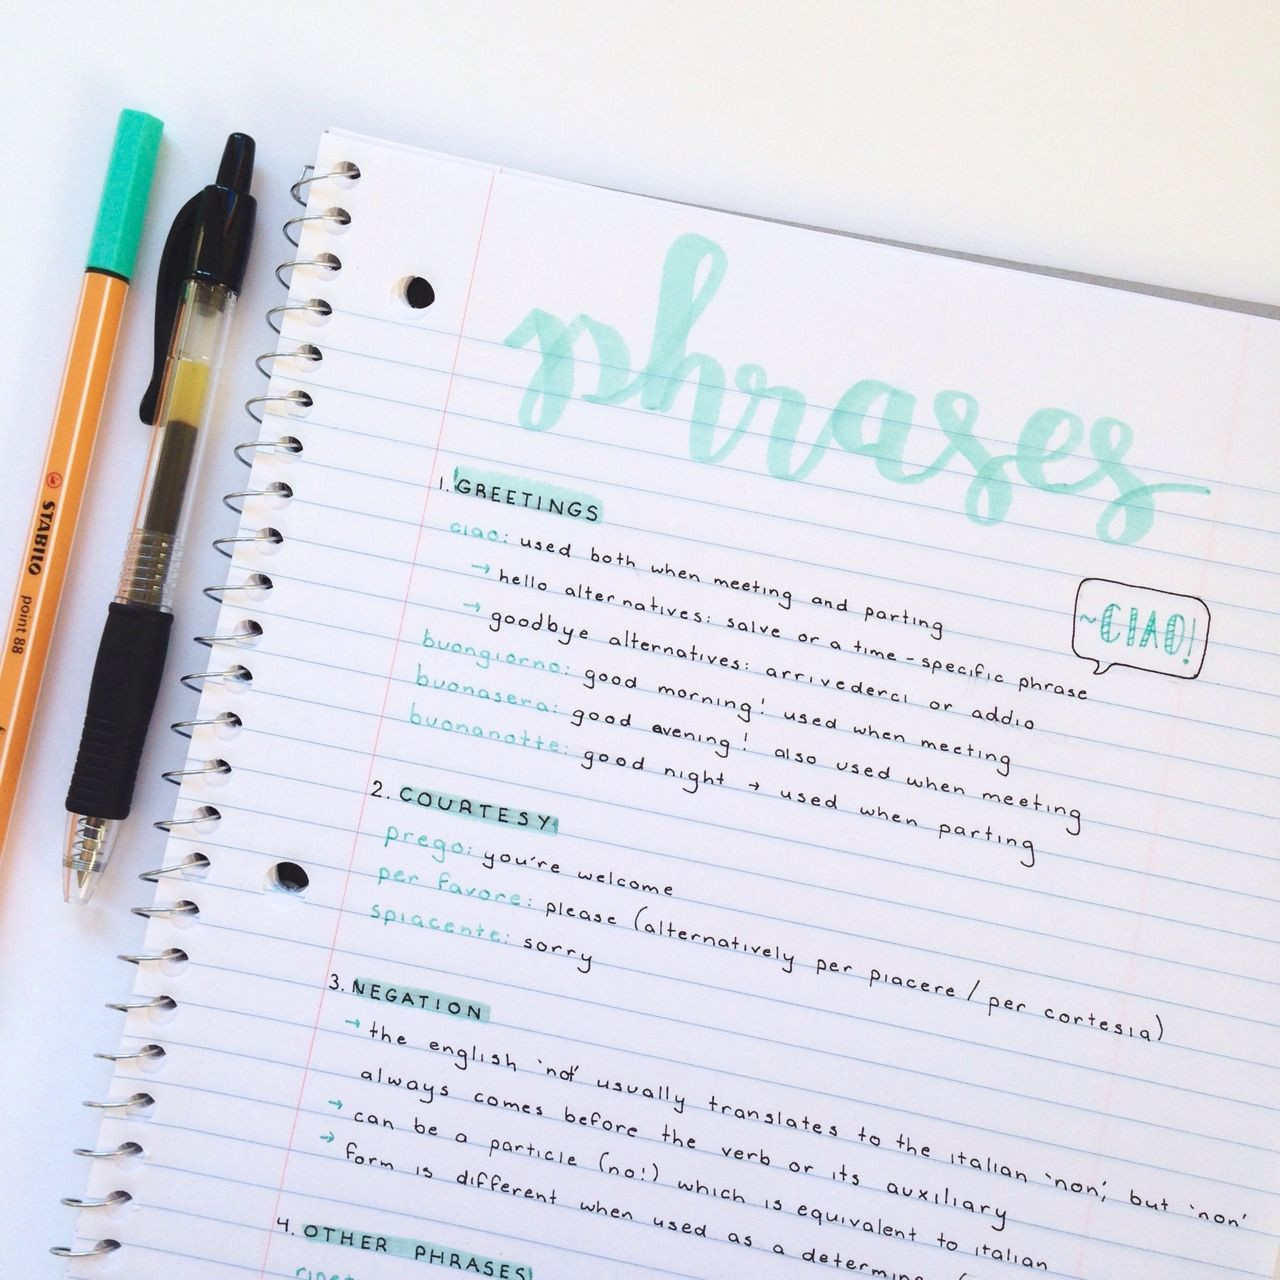 phrases
1. GREETINGS
ciao: used both when meeting and parting
→ hello alternatives: salve or a time-specific phrase
→ goodbye alternatives: arrivederci or addio
buongiorno: good morning! used when meeting
buonasera: good evening! also used when meeting
buonanotte: good night → used when parting
~CIAO!
2. COURTESY
prego: you're welcome
per favore: please (alternatively per piacere / per cortesia)
spiacente: sorry
3. NEGATION
→ the english 'not' usually translates to the italian 'non', but 'non'
always comes before the verb or its auxiliary
→ can be a particle (no!) which is equivalent to italian
→ form is different when used as a
4. OTHER PHRASES
STABILO point 88